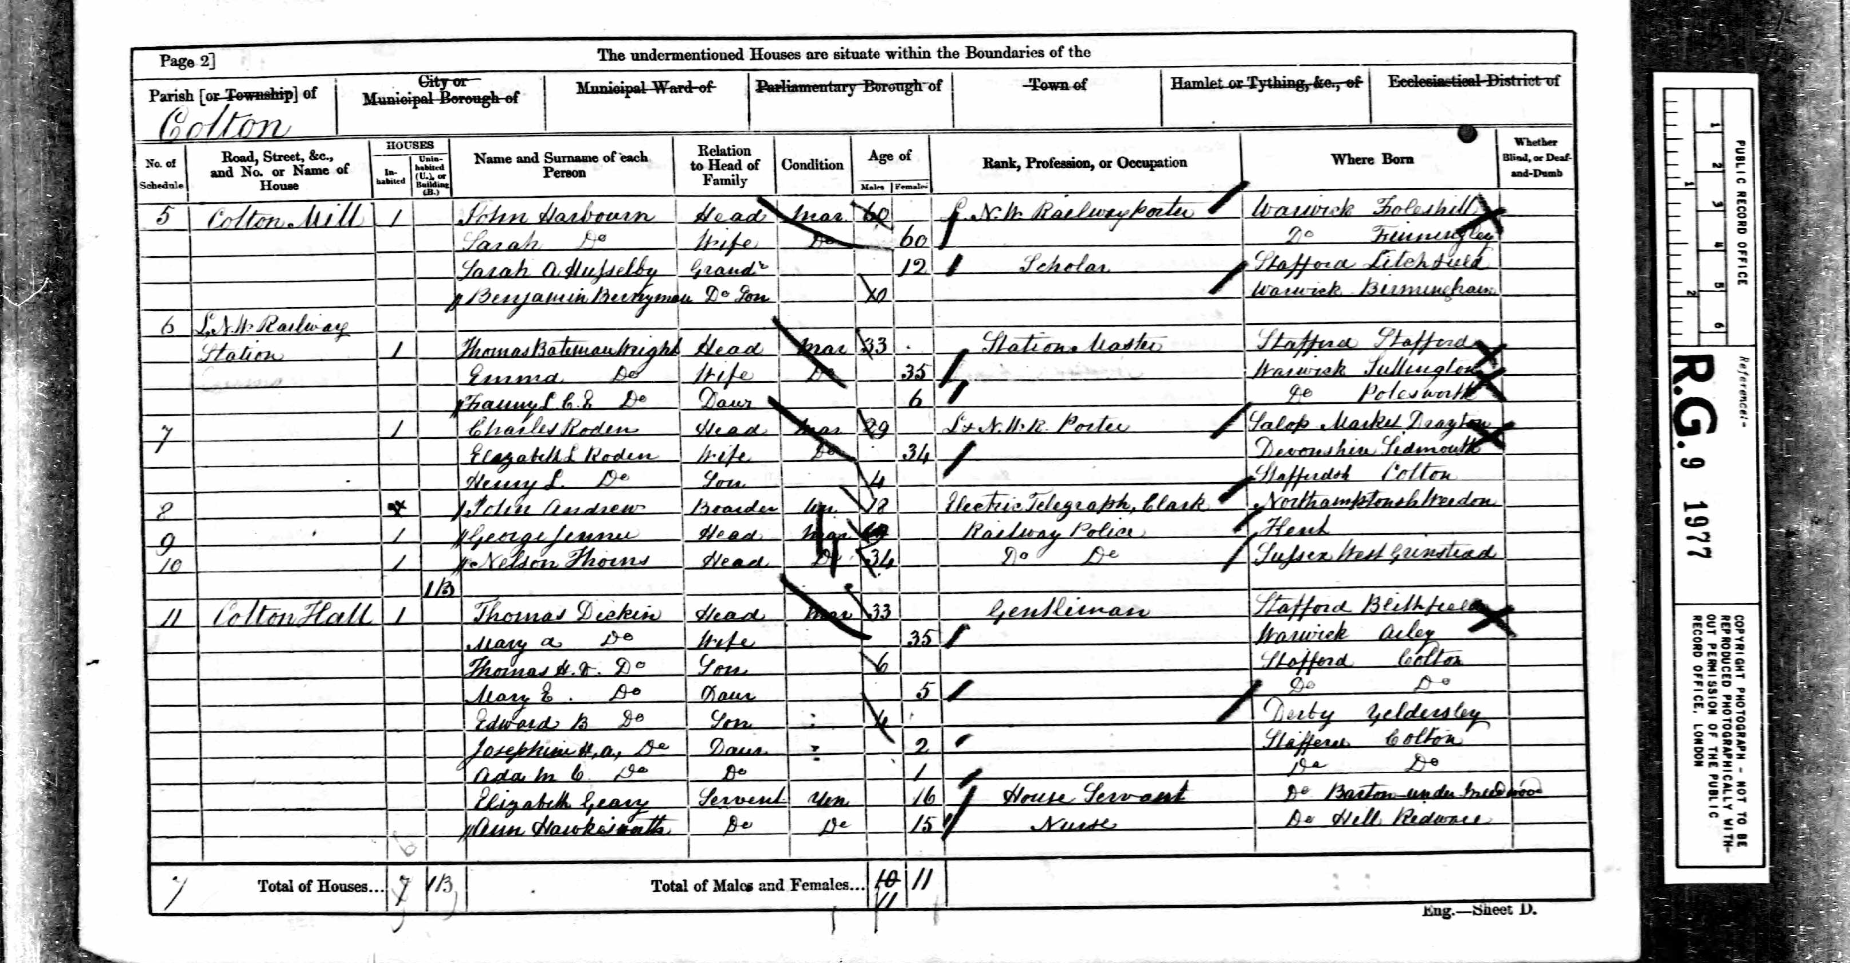 Page 2]
The undermentioned Houses are situate within the Boundaries of the
Parish [or Township] of
City or Municipal Borough of
Municipal Ward of
Parliamentary Borough of
Town of
Hamlet or Tything, &c., of
Ecclesiastical District of
Colton
No. of Schedule
Road, Street, &c., and No. or Name of House
HOUSES
Inhabited
Uninhabited (U.), or Building (B.)
Name and Surname of each Person
Relation to Head of Family
Condition
Age of
Males
Females
Rank, Profession, or Occupation
Where Born
Whether Blind, or Deaf-and-Dumb
5 Colton Mill 1 John Harbourn Head Mar 60 L. N. W. Railway Porter Warwick Foleshill
Sarah Do Wife Do 60 Do
Sarah A Grandr 12 Scholar Stafford Litchfield
Benjamin Berryman Do Son 10 Warwick Birmingham
6 L. N. W. Railway
Station 1 Thomas Bateman Wright Head Mar 33 Station Master Stafford Stafford
Emma Do Wife Do 35 Warwick
Fanny L. C. E Do Daur 6 Do Polesworth
7 1 Charles Roden Head Mar 29 L & N. W. R. Porter Salop Market Drayton
Elizabeth L Roden Wife Do 34 Devonshire Sidmouth
Henry L. Do Son 4 Staffordsh Colton
8 John Andrew Boarder Un 18 Electric Telegraph, Clark Northamptonsh Weedon
9 1 George Head Mar Railway Police Kent
10 1 Nelson Thorns Head Do 34 Do Do Sussex West Grinstead
1B
11 Colton Hall 1 Thomas Dickin Head Mar 33 Gentliman Stafford Blithfield
Mary A Do Wife 35 Warwick Arley
Thomas H. Do Son 6 Stafford Colton
Mary E. Do Daur 5 Do Do
Edward B Do Son 4 Derby Yeldersley
Josephine H. A. Do Daur 2 Stafford Colton
Ada M C. Do Do 1 Do Do
Elizabeth Geary Servent Un 16 House Servant Do Barton under Needwood
Ann Do Do 15 Nurse Do Hill Ridware
7 Total of Houses... 7 1B Total of Males and Females... 10 11
11
Eng.—Sheet D.
PUBLIC RECORD OFFICE
1 2 3 4 5 6
1 2
Reference:-
R.G. 9 1977
COPYRIGHT PHOTOGRAPH - NOT TO BE
REPRODUCED PHOTOGRAPHICALLY WITH-
OUT PERMISSION OF THE PUBLIC
RECORD OFFICE, LONDON